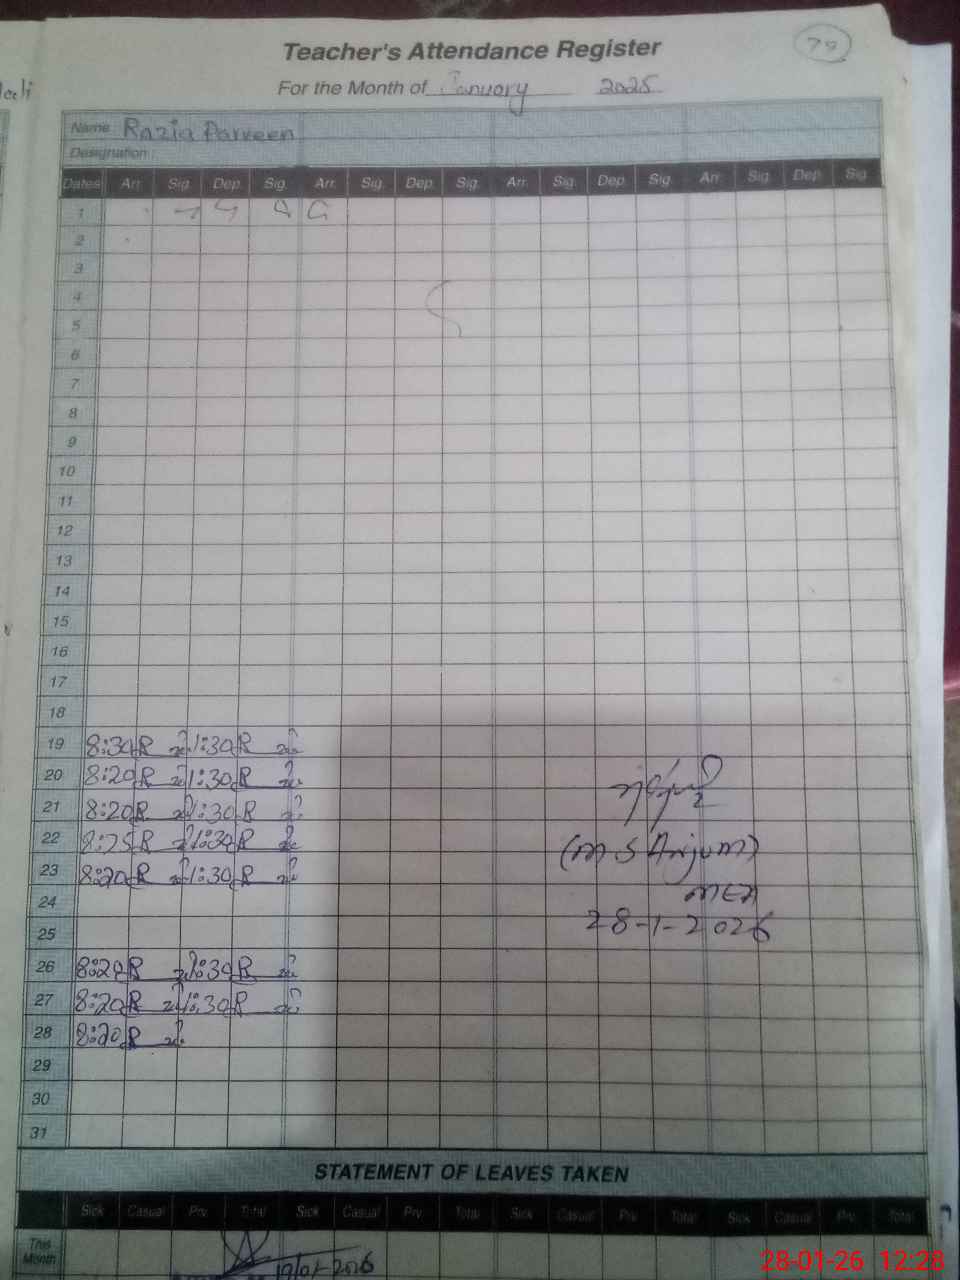 78
Teacher's Attendance Register
For the Month of January 2025
Name Razia Parveen
Designation :
Dates Arr. Sig. Dep. Sig. Arr. Sig. Dep. Sig. Arr. Sig. Dep. Sig. Arr. Sig. Dep. Sig.
1
2
3
4
5
6
7
8
9
10
11
12
13
14
15
16
17
18
19 8:30 1:30
20 8:20 1:30
21 8:20 1:30
22 8:25 1:30
23 8:20 1:30
(M.S Anjum)
24
MEA
25
28-1-2026
26 8:20 1:30
27 8:20 1:30
28 8:20
29
30
31
STATEMENT OF LEAVES TAKEN
Sick Casual Prv. Total Sick Casual Prv. Total Sick Casual Prv. Total Sick Casual Prv. Total
This Month
19/01-2026
28-01-26 12:28